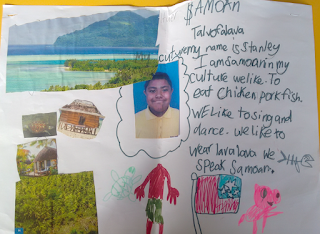 SAMOAN
Talofalava
my name is Stanley
I am Samoan in my
culture we like. To
eat chicken pork fish.
WE Like to sing and
dance. We like to
wear lavalava we
SPEAK Samoan.